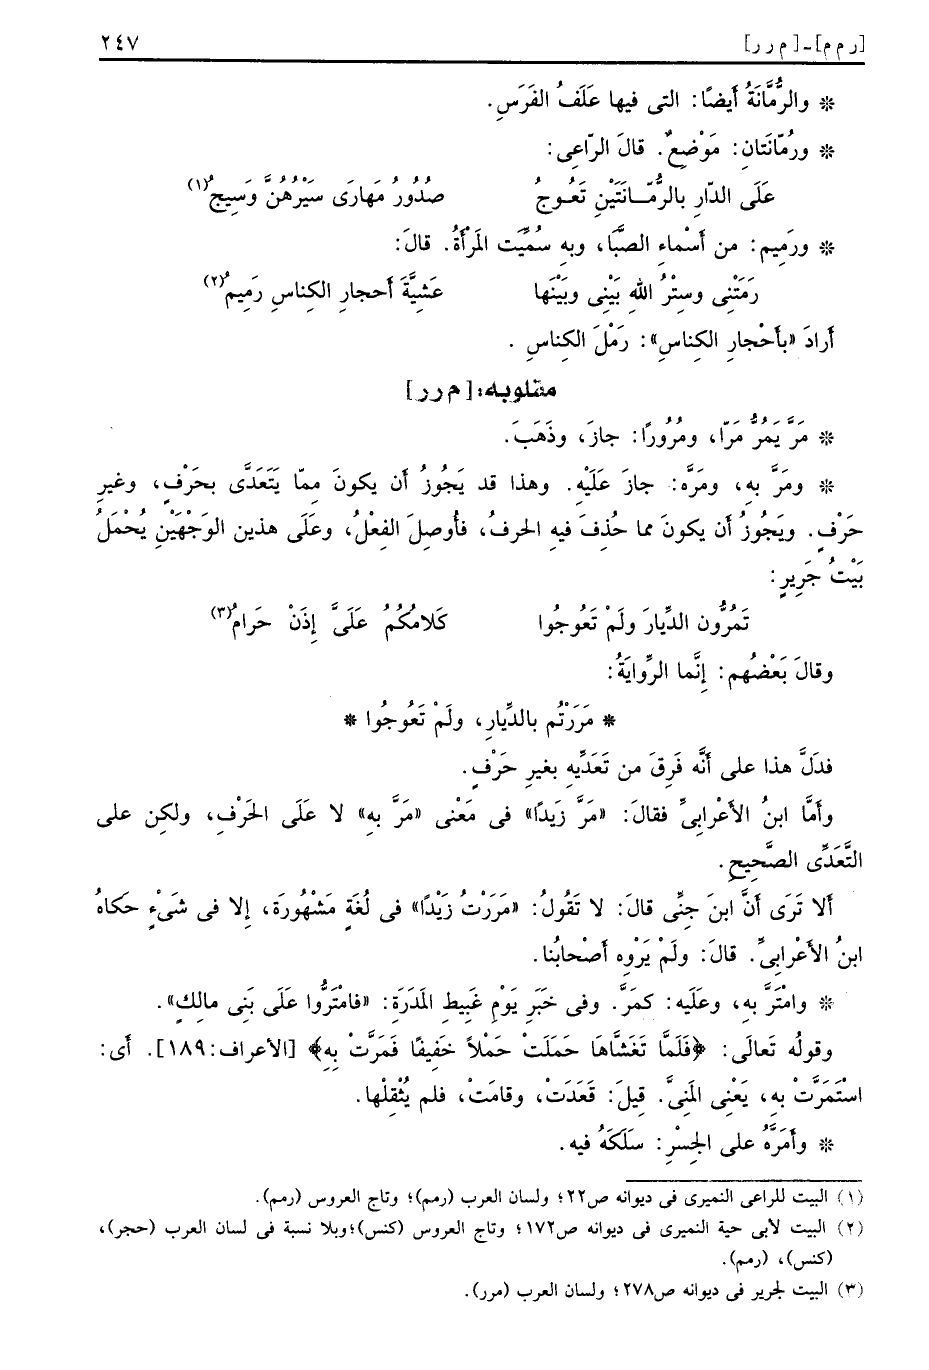 [ر م م] - [م ر ر] ٢٤٧
* والرُّمَّانَةُ أيضًا: التى فيها عَلَفُ الفَرَسِ.
* ورُمّانَتانِ: مَوْضِعٌ. قالَ الرّاعِى:
عَلَى الدّارِ بالرُّمّــانَتَيْنِ تَعُـوجُ صُدُورُ مَهارَى سَيْرُهُنَّ وَسِيجُ(١)
* ورَمِيم: من أسْماءِ الصَّبَا، وبه سُمِّيَت المَرْأةُ. قالَ:
رَمَتْنِى وسِتْرُ اللهِ بَيْنِى وبَيْنَها عَشِيَّةَ أحجارِ الكِناسِ رَمِيمُ(٢)
أرادَ «بأحْجارِ الكِناسِ»: رَمْلَ الكِناسِ .
مقلوبه: [م ر ر]
* مَرَّ يَمُرُّ مَرّا، ومُرُورًا: جازَ، وذَهَبَ.
* ومَرَّ بهِ، ومَرَّه: جازَ عَلَيْهِ. وهذا قد يَجُوزُ أن يكونَ مِمّا يَتَعَدَّى بحَرْفٍ، وغيرِ
حَرْفٍ. ويَجُوزُ أن يكونَ مما حُذِفَ فيه الحرفُ، فأُوصِلَ الفِعْلُ، وعَلَى هذين الوَجْهَيْنِ يُحْمَلُ
بَيْتُ جَرِيرٍ:
تَمُرُّون الدِّيارَ ولَمْ تَعُوجُوا كَلامُكُمُ عَلَىَّ إِذَنْ حَرامُ(٣)
وقالَ بَعْضُهم: إنَّما الرِّوايَةُ:
* مَرَرْتُم بالدِّيارِ، ولَمْ تَعُوجُوا *
فدَلَّ هذا على أنَّه فَرِقَ من تَعَدِّيهِ بغيرِ حَرْفٍ.
وأمَّا ابنُ الأعْرابِىِّ فقالَ: «مَرَّ زَيدًا» فى مَعْنى «مَرَّ به» لا عَلَى الحَرْفِ، ولكن على
التَّعَدِّى الصَّحِيحِ.
ألا تَرَى أنَّ ابنَ جِنِّى قالَ: لا تَقُولُ: «مَرَرْتُ زَيْدًا» فى لُغَةٍ مَشْهُورَة، إلا فى شَىْءٍ حَكاهُ
ابنُ الأعْرابِىِّ. قالَ: ولَمْ يَرْوِه أصْحابُنا.
* وامْتَرَّ بهِ، وعَلَيه: كمَرَّ. وفى خَبَرِ يَوْمِ غَبِيطِ المَدَرَةِ: «فامْتَرُّوا عَلَى بَنِى مالِكٍ».
وقولُه تَعالَى: ﴿فَلَمَّا تَغَشَّاهَا حَمَلَتْ حَمْلاً خَفِيفًا فَمَرَّتْ بِهِ﴾ [الأعراف:١٨٩]. أى:
اسْتَمَرَّتْ بهِ، يَعْنِى المَنِىَّ. قيلَ: قَعَدَتْ، وقامَتْ، فلم يُثْقِلْها.
* وأمَرَّهُ على الجِسْرِ: سَلَكَهُ فيه.
(١) البيت للراعى النميرى فى ديوانه ص٢٢؛ ولسان العرب (رمم)؛ وتاج العروس (رمم).
(٢) البيت لأبى حية النميرى فى ديوانه ص١٧٢؛ وتاج العروس (كنس)؛وبلا نسبة فى لسان العرب (حجر)،
(كنس)، (رمم).
(٣) البيت لجرير فى ديوانه ص٢٧٨؛ ولسان العرب (مرر).